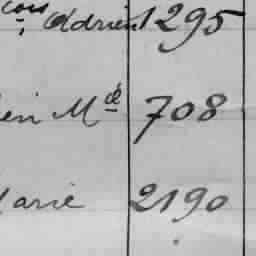 cois Adrien 1295
en Md 708
arie 2190